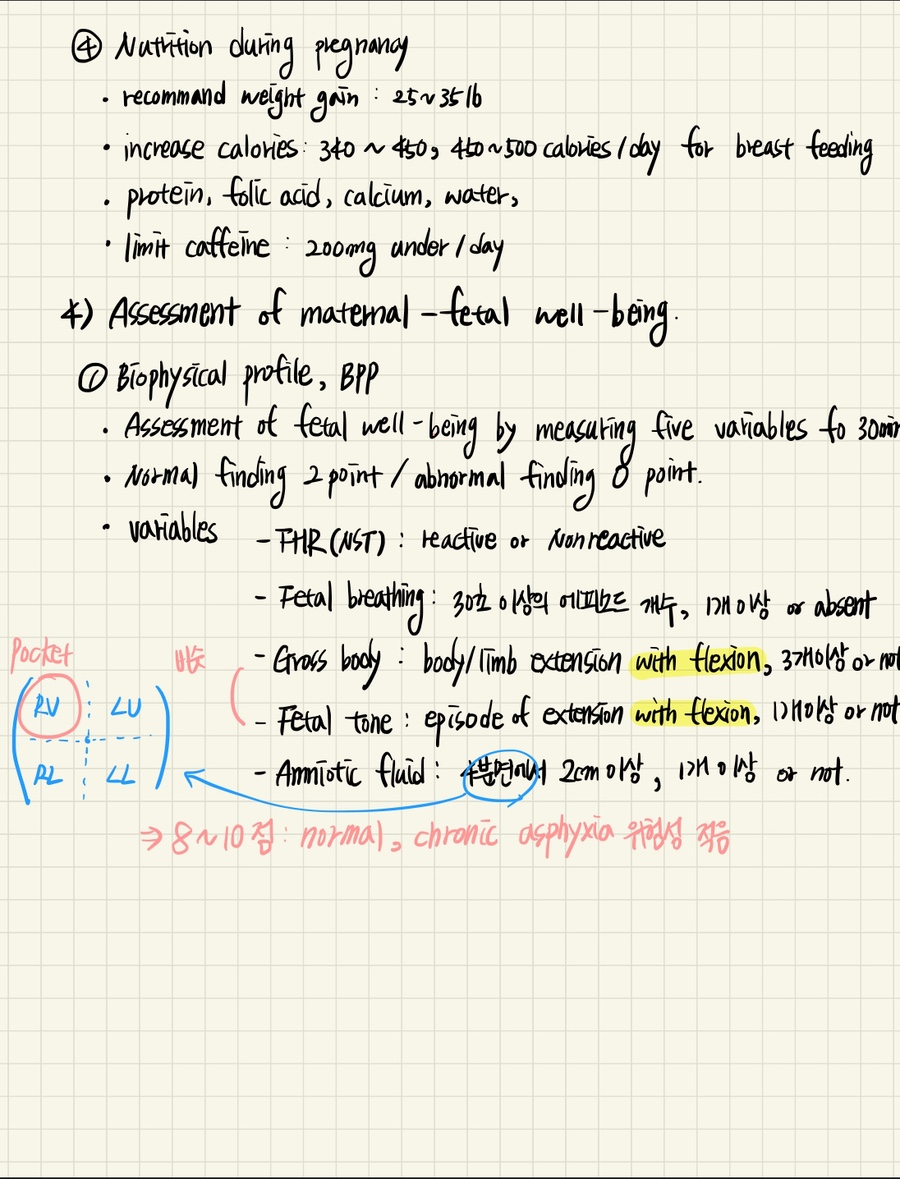 ④ Nutrition during pregnancy
· recommand weight gain : 25~35 lb
· increase calories : 340 ~ 450, 450~500 calories/day for breast feeding
· protein, folic acid, calcium, water,
· limit caffeine : 200mg under/day
4) Assessment of maternal-fetal well-being.
① Biophysical profile, BPP
· Assessment of fetal well-being by measuring five variables fo 30min
· Normal finding 2 point / abnormal finding 0 point.
· variables
- FHR(NST) : reactive or Nonreactive
- Fetal breathing : 30초 이상의 에피소드 개수, 1개 이상 or absent
Pocket
비슷
- Gross body : body/limb extension with flexion, 3개이상 or not
RU LU
- Fetal tone : episode of extension with flexion, 1개이상 or not
RL LL
- Amniotic fluid : 4분면에서 2cm 이상, 1개 이상 or not.
⇒ 8~10점 : normal, chronic asphyxia 위험성 적음